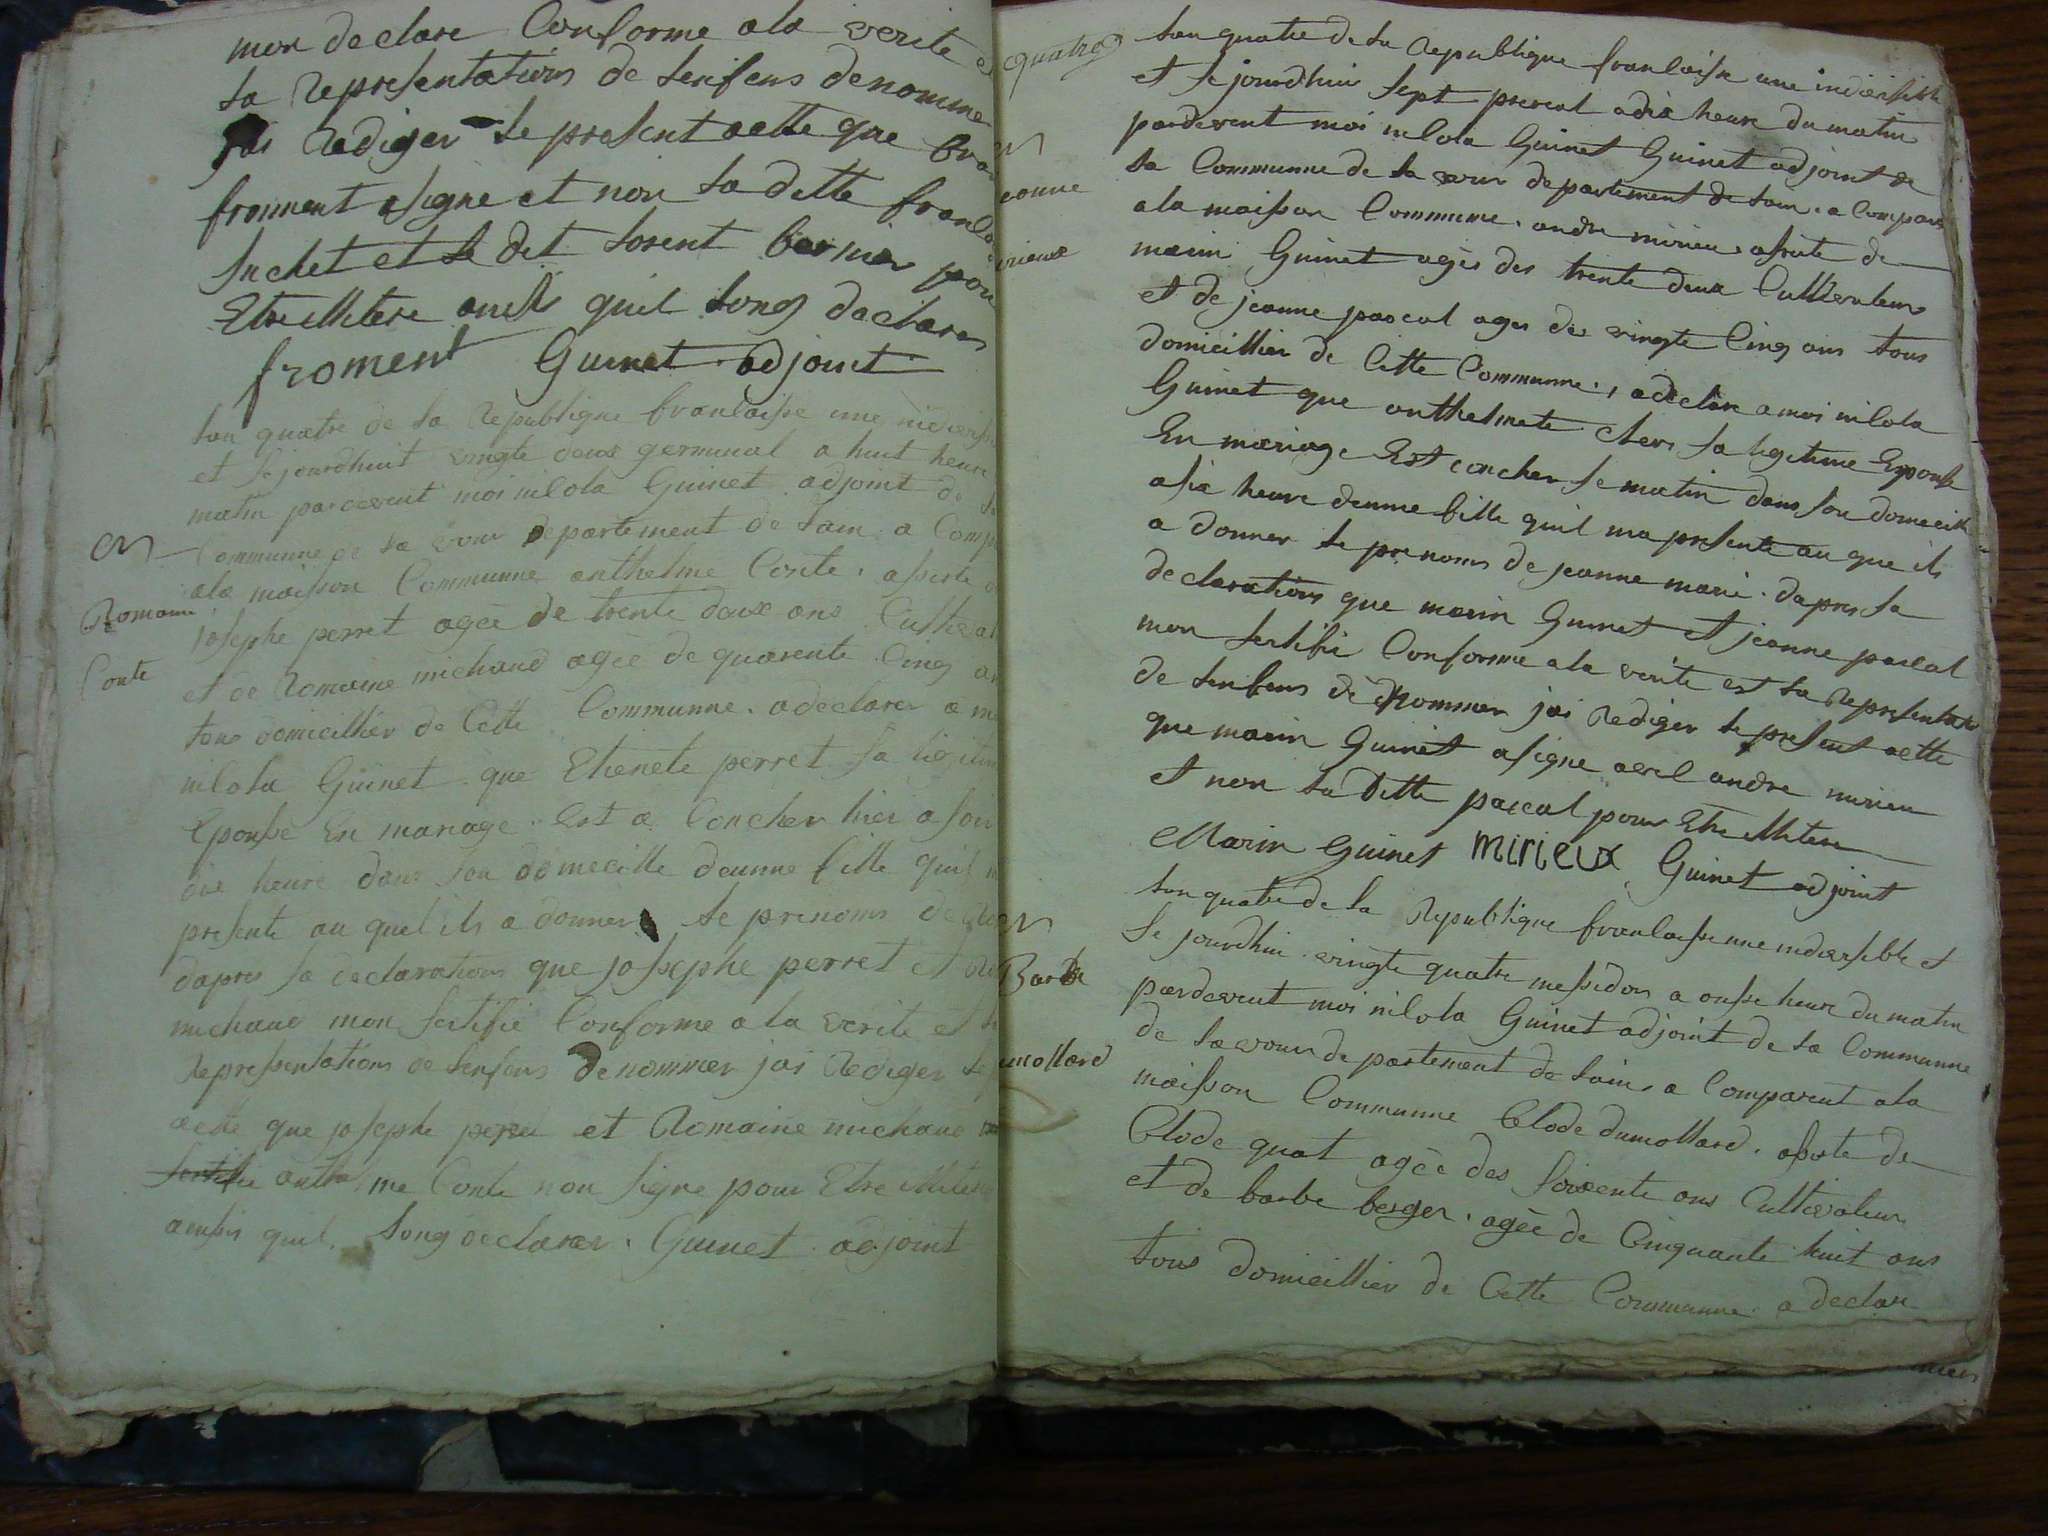 mon declare Conforme a la verite et
la Representations de lenfens denomme
jai Rediger le present aette que
froment a signe et non la ditte
Suchet et le dit lorent pour
Etre illitere quil long declarer
froment Guinet adjoint
lan quatre de la Republique francaisse une
et se jourdhuit vingte deux germinal a huit heure
matin pardevent moi nicola Guinet adjoint de la
Commune de la vour Departement de lain a
a la maisson Commune anthelme Conte . assiste
N
Romaine
Conte
josephe perret agèe de trente deux ans
et de Romaine michaud agèe de quarente Cinq
tous domicillier de Cette Commune . a declarer a
nicola Guinet que Etienete perret sa
Epousse En mariage . Est a Coucher hier a soir
dix heure dans son domecille deunne fille quil
presente au quel ils a donner le prenoms de
dapres la declarations que josephe perret et
michaud mon sertifie Conforme a la verite et
Representations de lenfens Denommer jai Rediger le
aette que josephe perret et Romaine michaud
sertifie anthelme Conte non signe pour Etre
quil long declarer . Guinet adjoint
quatre
lan quatre de la Republique francaisse une indivisible
et se jourdhuis sept prerial a dix heure du matin
pardevent moi nicola Guinet Guinet adjoint de
la Commune de la vour departement de lain . a
a la maisson Commune . andre mirieu . assiste de
N
marin Guinet agès des trente deux Cultivateur
et de jeanne pascal ages des vingte Cinq ans tous
domicillier de Cette Commune , a declare a moi nicola
Guinet que anthelmete sa legitime Epousse
En mariage Est coucher se matin dans son domecille
a six heure deunne fille quil ma presente au que ils
a donner le prenoms de jeanne marie . dapres la
declarations que marin Guinet et jeanne pascal
mon sertifie Conforme a la verite est la
de lenfens dènommer jai Rediger le present aette
que marin Guinet a signe avec andre mirieu
et non la ditte pascal pour Etre illitere
Marin Guinet mirieux Guinet adjoint
N
Barbe
lan quatre de la Republique francaisse une indivisible et
se jourdhui vingte quatre messidor a onsse heure du matin
pardevent moi nicola Guinet adjoint de la Commune
de la vour departement de lain a Comparent a la
maisson Commune Clode dumollard . assiste de
Clode quat agèe des soixente ans Cultivateur
et de barbe berger . agèe de Cinquante huit ans
tous domicillier de Cette Commune a declare